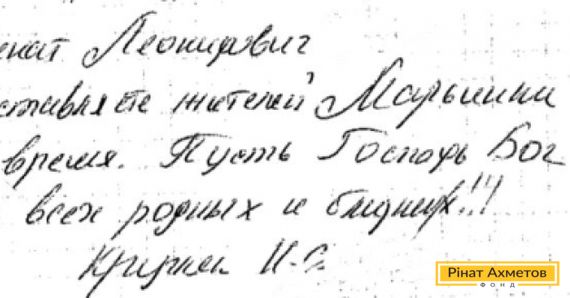 нат Леонидович
ставляете жителей Марьинки
время. Пусть Господь Бог
всех родных и близких!!!
И.
Рінат Ахметов
ФОНД